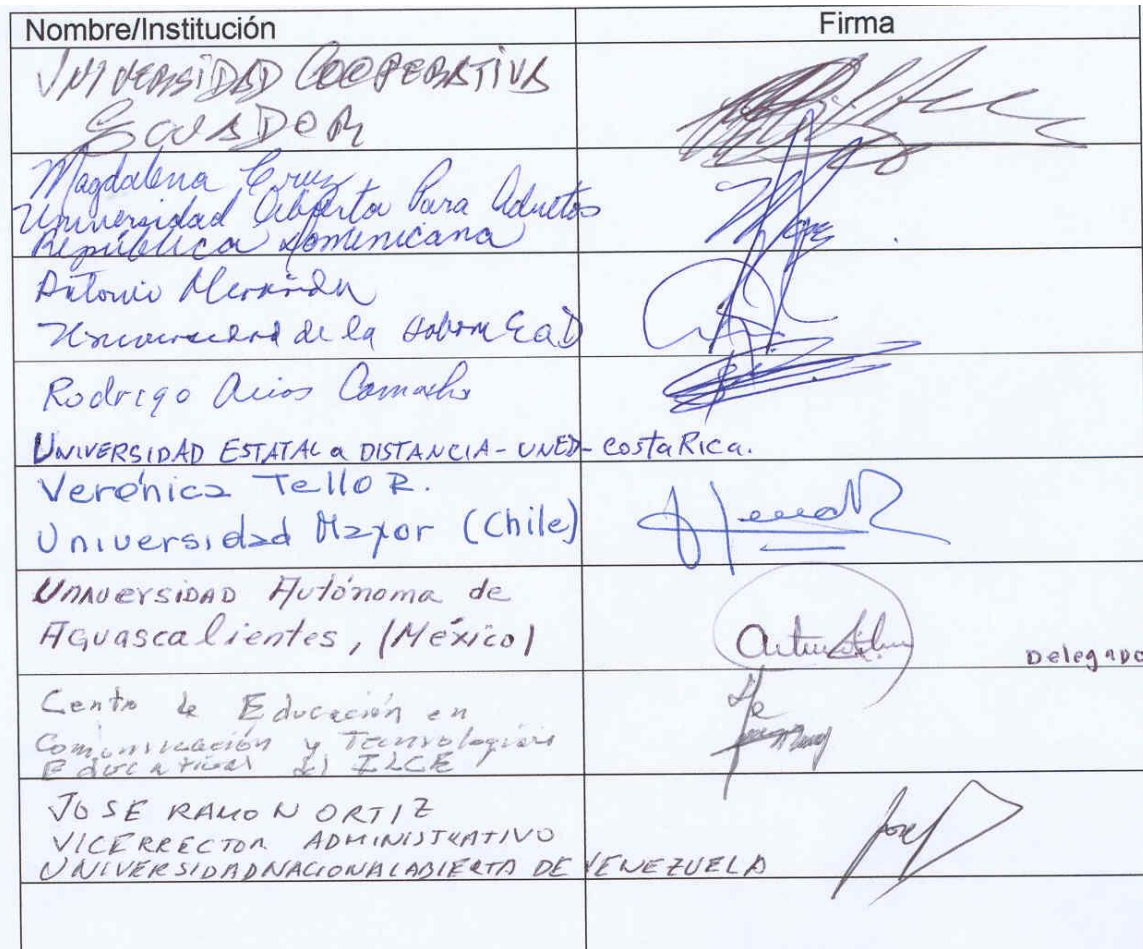 Nombre/Institución Firma
UNIVERSIDAD COOPERATIVA
ECUADOR
Magdalena Cruz
Universidad Abierta Para Adultos
República Dominicana
Antonio
Universidad de la EaD
Rodrigo Arias Camacho
UNIVERSIDAD ESTATAL a DISTANCIA - UNED - Costa Rica.
Verónica Tello R.
Universidad Mayor (Chile)
UNIVERSIDAD Autónoma de
Aguascalientes, (México)
Delegado
Centro de Educación en
Comunicación y Tecnologías
Educativas del ILCE
JOSE RAMON ORTIZ
VICERRECTOR ADMINISTRATIVO
UNIVERSIDAD NACIONAL ABIERTA DE VENEZUELA